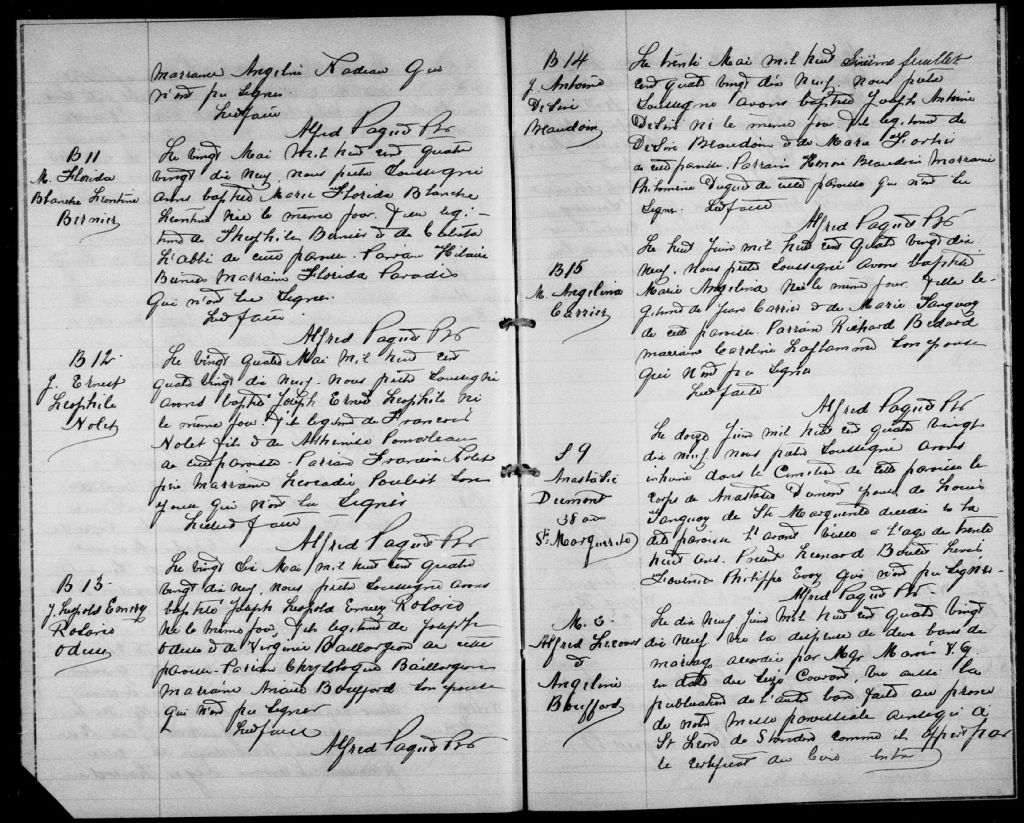 marraine Angelina Nadeau Qui
n'ont pu signer.
Lect faite
Alfred Paquet Ptr
B 11
M. Florida
Blanche Léontine
Bernier
Le vingt Mai mil huit cent quatre
vingt dix neuf, nous prêtre soussigné
avons baptisé Marie Florida Blanche
Léontine née le même jour, fille legi-
time de Theophile Bernier & de
L'abbé de cette paroisse. Parrain Hilaire
Bernier marraine Florida Paradis
Qui n'ont su signer.
Lect faite.
Alfred Paquet Ptr
B 12.
J. Ernest
Léophile
Nolet
Le vingt quatre Mai mil huit cent
quatre vingt dix neuf. nous prêtre soussigné
avons baptisé Joseph Ernest Léophile né
le même jour fils legitime de Francois
Nolet fils & de Arthemise Pomerleau
de cette paroisse. Parrain Francois Nolet
père Marraine Leocadie Pouliot son
épouse Qui n'ont su signer
Lecture faite
Alfred Paquet Ptr
B 13.
J. Leopold Emery
Rosario
Odieu
Le vingt six Mai mil huit cent quatre
vingt dix neuf, nous prêtre soussigné avons
baptisé Joseph Leopold Emery Rosario
né le même jour, fils legitime de Joseph
& de Virginie Baillargeon de cette
paroisse. Parrain Chrysologue Baillargeon
Marraine Bouffard son épouse
Qui n'ont pu signer
Lect faite
Alfred Paquet Ptr
Sixième feuillet
B 14
J. Antoine
Désiré
Beaudoin
Le trente Mai mil huit
cent quatre vingt dix neuf, nous prêtre
soussigné avons baptisé Joseph Antoine
Désiré né le même jour fils legitime de
Désiré Beaudoin & de Marie Fortier
de cette paroisse. Parrain Honoré Beaudoin Marraine
Philomène de cette paroisse qui n'ont su
signer. Lect faite
Alfred Paquet Ptr
B 15
M. Angelina
Carrier
Le huit Juin mil huit cent quatre vingt dix
neuf, nous prêtre soussigné avons baptisé
Marie Angelina née le même jour. fille lé-
gitime de Jean Carrier & de Marie Tanguay
de cette paroisse. Parrain Richard Bedard
marraine Caroline Laflamme son épouse
qui n'ont pu signer
Lect faite
Alfred Paquet Ptr
S 9
Anastasie
Dumont
38 ans
Ste Marguerite
Le douze Juin mil huit cent quatre vingt
dix neuf nous prêtre soussigné avons
inhumé dans le cimetière de cette paroisse le
corps de Anastasie Dumont épouse de Louis
Tanguay de Ste Marguerite décédée en la
dite paroisse l'avant veille à l'age de trente
huit ans. Présents
Philippe qui n'ont pu signer.
Alfred Paquet Ptr.
M. 3.
Alfred Lecours
&
Angelina
Bouffard
Le dix neuf Juin mil huit cent quatre vingt
dix neuf vu la dispense de deux bans de
mariage accordée par Mgr Marois V.G.
en date du seize Courant, vu aussi la
publication de l'autre ban faite au prone
de notre messe paroissiale ainsi qu'à
St Léon de Standon comme il appert par
le certificat du Curé entre